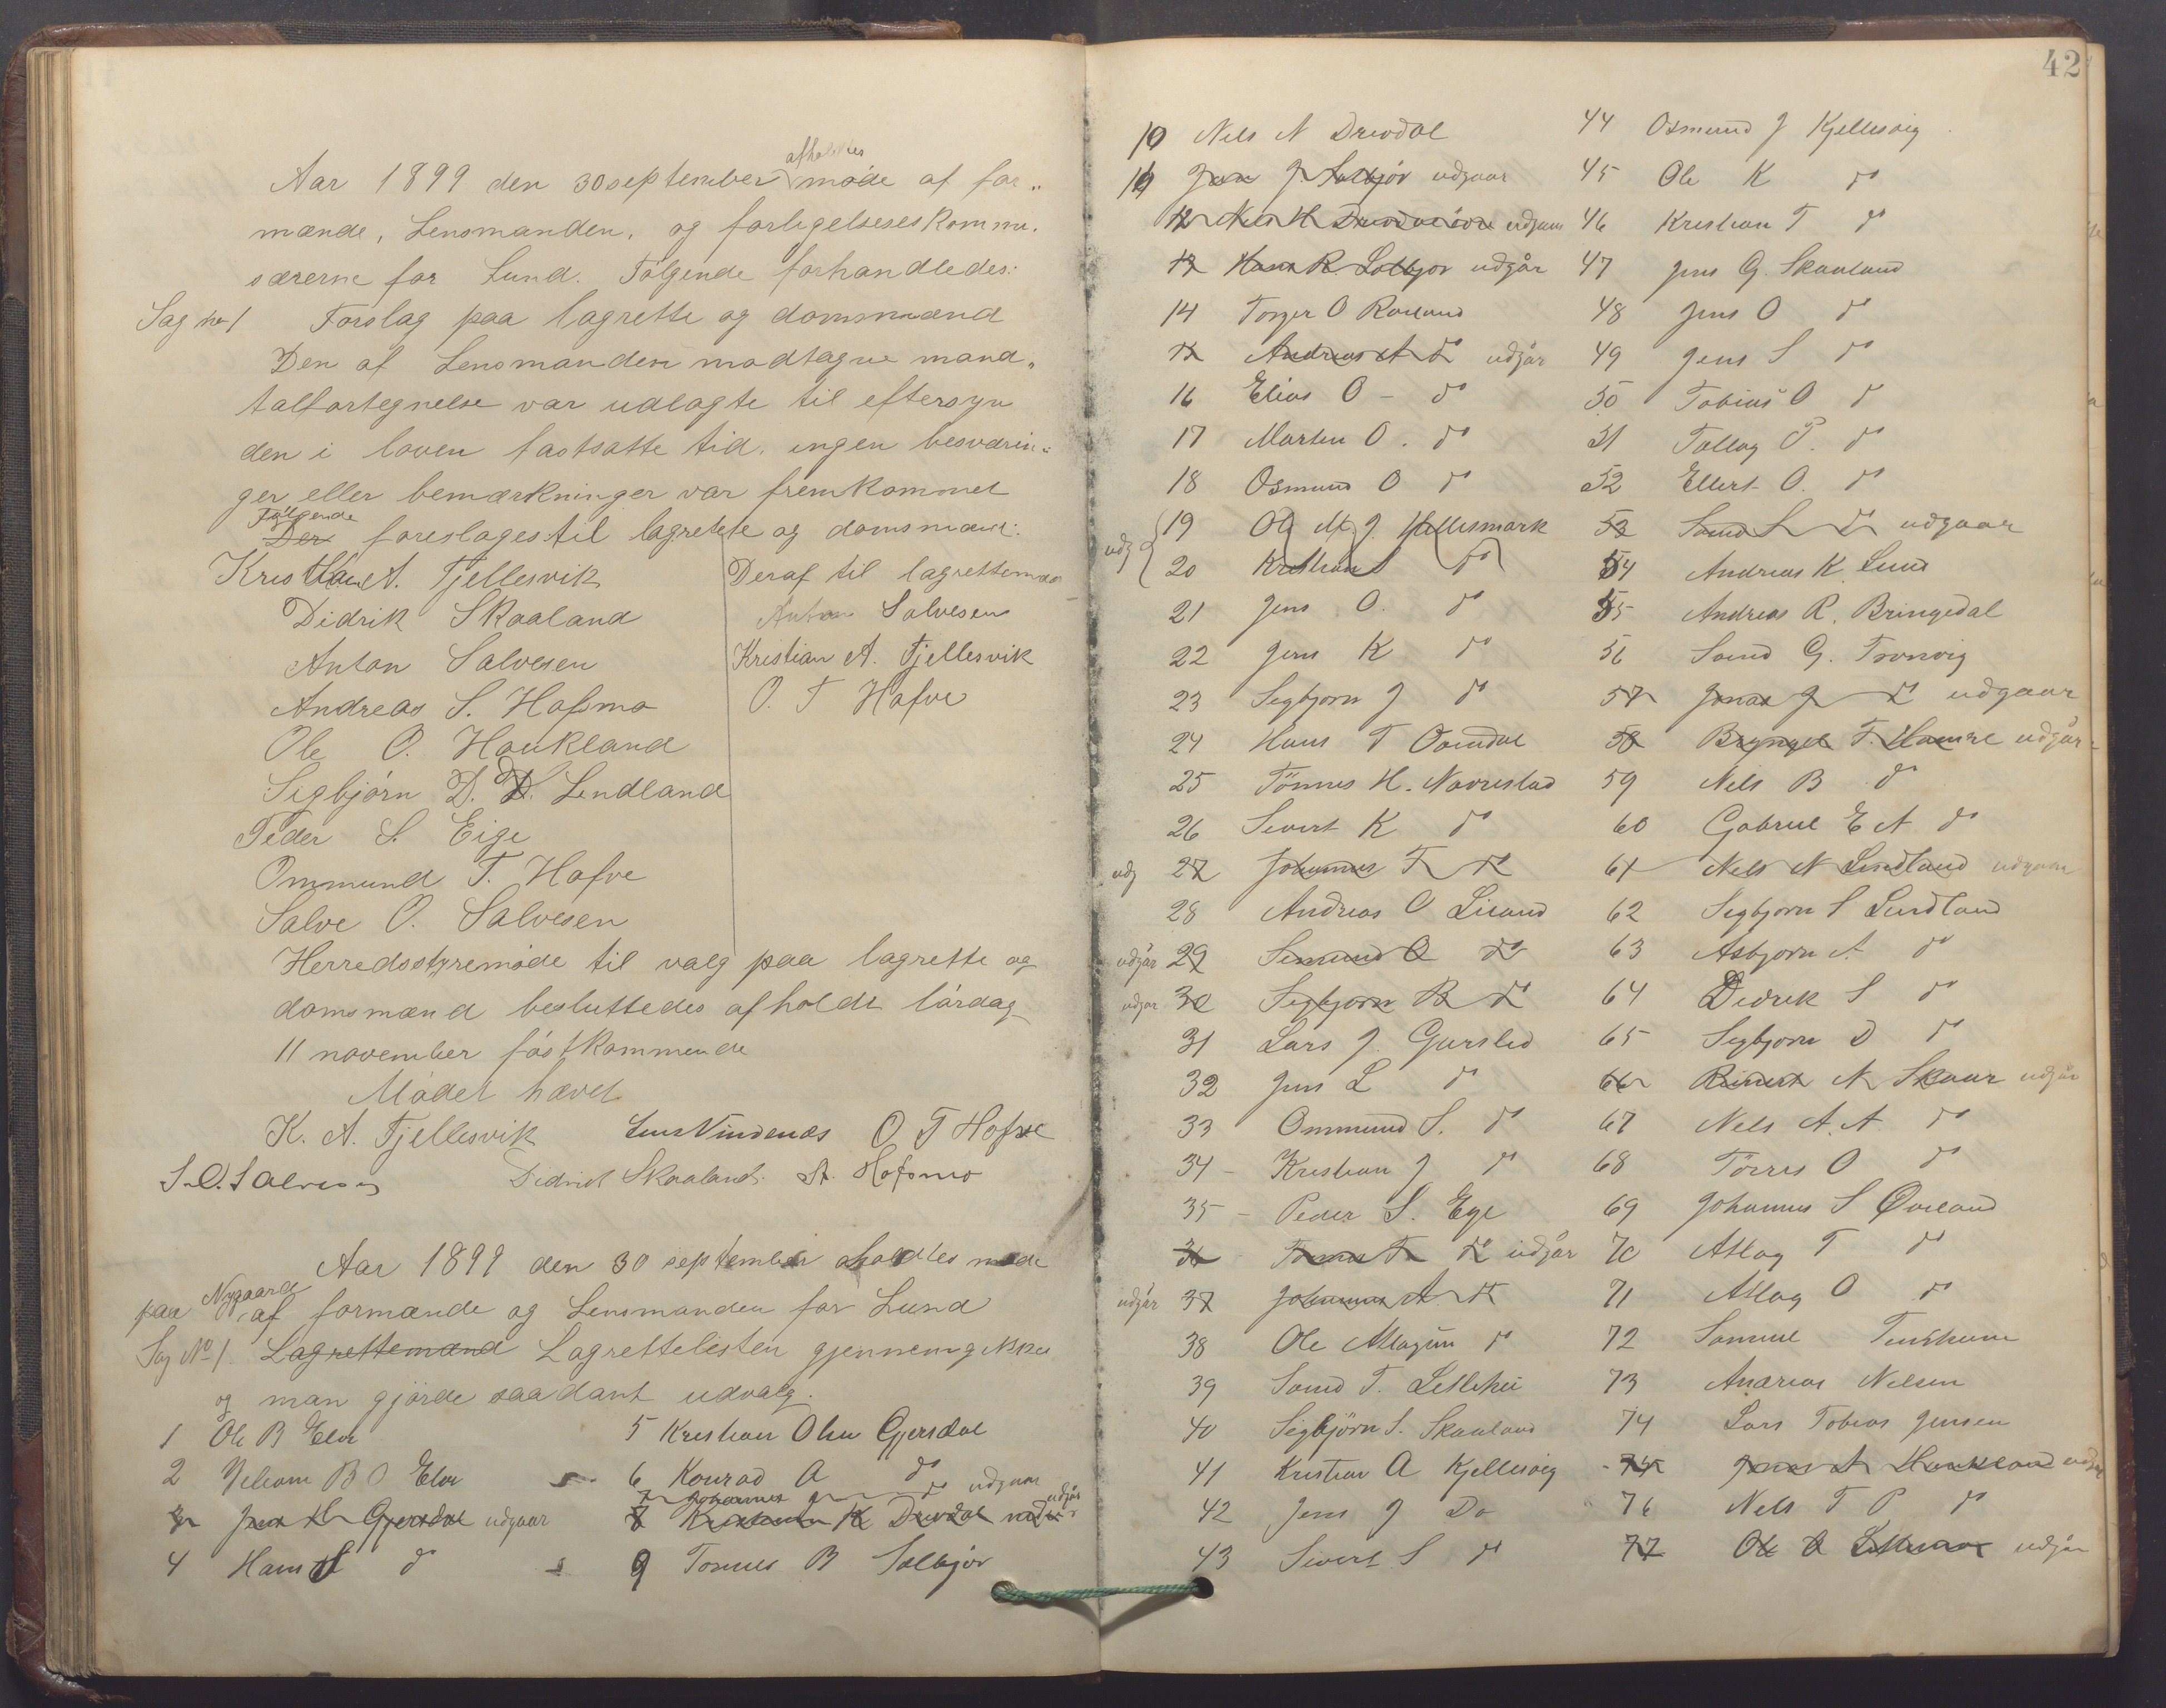 Aar 1899 den 30 september afholdtes møde af for„
mænde, Lensmanden, og forligelseseskommi„
særerne for Lund. Følgende forhandledes:
Sag no 1 Forslag paa lagrette og domsmænd
Den af Lensmanden modtagne mand„
talfortegnelse var udlagte til eftersyn
den i loven fastsatte tid. ingen besværin„
ger eller bemærkninger var fremkommet
Følgende
Der foreslages til lagrette og domsmænd:
Kristian A. Fjellesvik
Didrik Skaaland
Anton Salvesen
Andreas S. Hofsmo
Ole O. Haukland
Sigbjørn D. Lindland
Peder S. Eige
Ommund T. Hofve
Salve O. Salvesen
Deraf til lagrettemænd
Anton Salvesen
Kristian A. Fjellesvik
O. T Hofve
Herredsstyremøde til valg paa lagrette og
domsmænd besluttedes afholdt lördag
11 november først kommende
Mødet hævet
K. A. Fjellesvik Lars Vindenæs O T Hofve
S. O. Salvesen Didrick Skaaland. A. Hofsmo
Aar 1899 den 30 september aholdtes møde
paa Nygaard af formænde og Lensmanden for Lund
Sag No 1. Lagrettemænd Lagrettelisten gjennemgikkes
og man gjørde saadant udvalg.
1 Ole B Eler
2 Veleom B O Eler
3 Jens H Gjersdal udgaar
4 Hans S do
5 Kristian Olsen Gjersdal
6 Konrad A do
7 Johannes J do udgaar
8 K Drevdal udgår
9 Tønnes B Salbjør
42
10 Nels N Drevdal
11 Jens J Salbjør udgaar
12 Nels H udgaar
13 Hans R. Salbjør udgår
14 Torger O Rosland
15 Andreas A do udgår
16 Elias O – do
17 Martin O. do
18 Osmund O do
udg
19 Ole M. J. Hellesmark
20 Kristian S do
21 Jens O. do
22 Jens K do
23 Segbjørn J do
24 Hans T Osendal
25 Tönnes H. Navrestad
26 Sivert K do
udg 27 Johannes T do
28 Andreas O Liland
udgår 29 Semund O do
udgår 30 Segbjørn B do
31 Lars J. Gursled
32 Jens L do
33 Ommund S. do
34 – Kristian J do
35 – Peder S. Ege
36 Tønnes T do udgår
udgår 37 Johannes A do
38 Ole Atlagsen do
39 Samd T. Letlehei
40 Segbjörn S. Skaaland
41 Kristian A Kjellesvig
42 Jens J Do
43 Sivert S do
44 Osmund J Kjellesvig
45 Ole K do
46 Kristian T do
47 Jens G. Skaaland
48 Jens O do
49 Jens S do
50 Tobias O do
51 Tallag P. do
52 Ellert O. do
53 Samd S do udgaar
54 Andreas K. Lund
55 Andreas R. Bringedal
56 Samd G. Tronvig
57 Jonas J do udgaar
58 Bryngel T. Hamre udgår
59 Nels B do
60 Gabriel E A do
61 Nels N Lindland udgaar
62 Segbjørn S Lindland
63 Asbjørn A do
64 Didrik S do
65 Segbjørn D do
66 N Skaar udgår
67 Nels A. A. do
68 Törres O do
69 Johannes S Øvland
70 Atlag T do
71 Atlag O do
72 Samuel
73 Andreas Nelsen
74 Lars Tobias Jensen
75 Jonas A Haukland udgår
76 Nels T P do
77 Ole O udgår